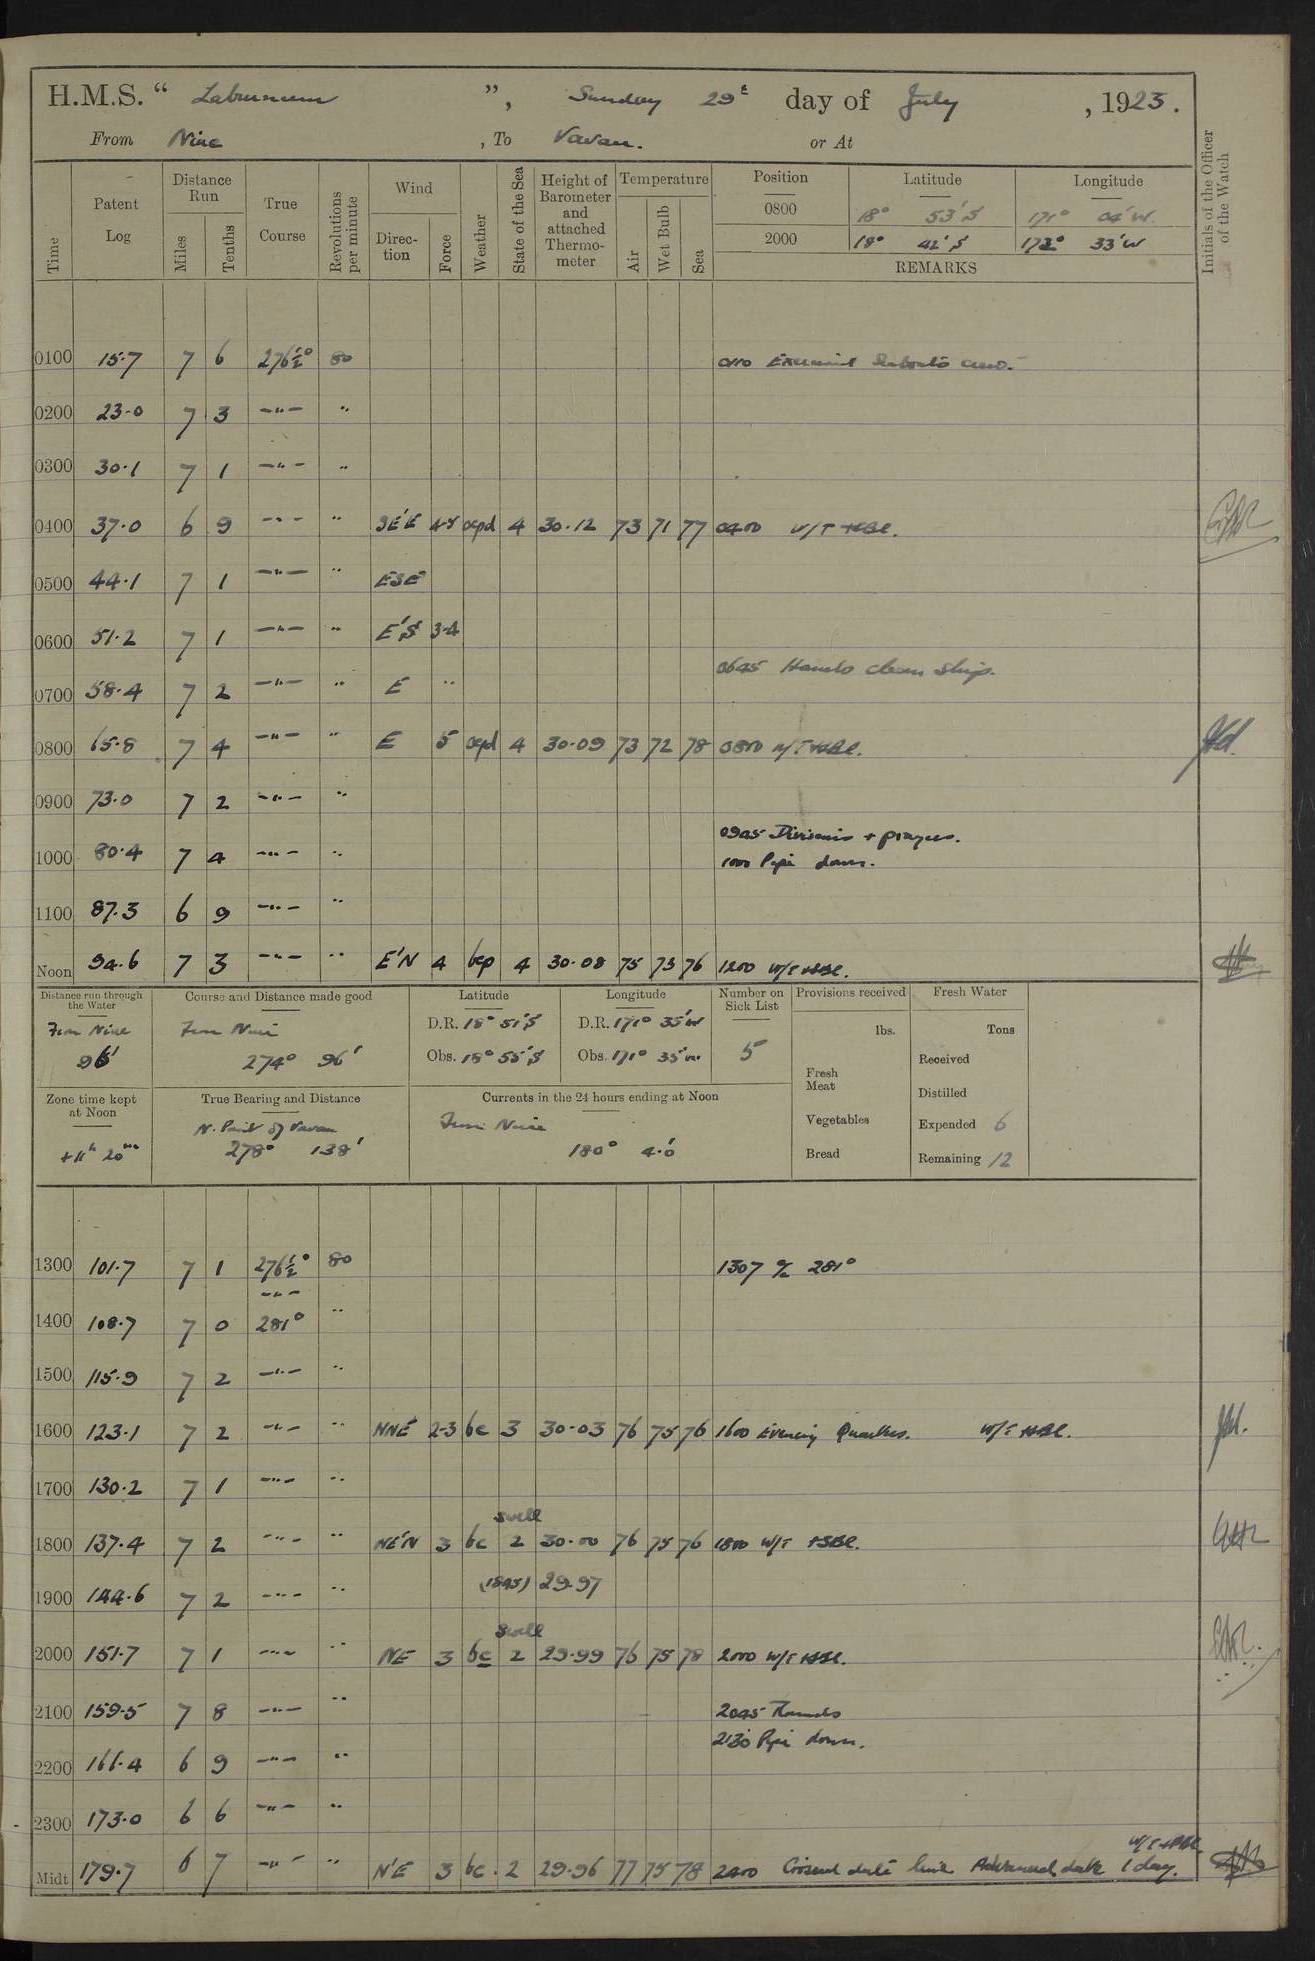 H.M.S. “ Laburnum ”, Sunday 29th day of July, 1923.
From Niue, To Vavau. or At
Time
Patent Log
Distance Run
Miles
Tenths
True Course
Revolutions per minute
Wind
Direction
Force
Weather
State of the Sea
Height of Barometer and attached Thermometer
Temperature
Air
Wet Bulb
Sea
Position Latitude Longitude
0800 18° 53'S 171° 04'W
2000 18° 42'S 172° 33'W
REMARKS
Initials of the Officer of the Watch
0100 15.7 7 6 276½° 80
0200 23.0 7 3 —"— "
0300 30.1 7 1 —"— "
0400 37.0 6 9 —"— " SE'E 4-5 ocpd 4 30.12 73 71 77 0400 W/T
0500 44.1 7 1 —"— " ESE
0600 51.2 7 1 —"— " E'S 3-4
0645 Hands clean ship.
0700 58.4 7 2 —"— " E "
0800 65.8 7 4 —"— " E 5 ocpd 4 30.09 73 72 78 0800 W/T
0900 73.0 7 2 —"— "
0945 Divisions + prayers.
1000 80.4 7 4 —"— " 1000 Pipe down.
1100 87.3 6 9 —"— "
Noon 94.6 7 3 —"— " E'N 4 bcp 4 30.08 75 73 76 1200 W/T
Distance run through the Water
From Niue
96'
Course and Distance made good
From Niue
274° 96'
Latitude
D.R. 18° 51'S
Obs. 18° 55'S
Longitude
D.R. 171° 35'W
Obs. 171° 35'W.
Number on Sick List
5
Provisions received
lbs.
Fresh Meat
Vegetables
Bread
Fresh Water
Tons
Received
Distilled
Expended 6
Remaining 12
Zone time kept at Noon
+11h 20m
True Bearing and Distance
N. Point of Vavau
278° 138'
Currents in the 24 hours ending at Noon
From Niue
180° 4.0'
1300 101.7 7 1 276½° 80 1307 a/c 281°
—"—
1400 108.7 7 0 281° "
1500 115.9 7 2 —"— "
1600 123.1 7 2 —"— " NNE 2-3 bc 3 30.03 76 75 76 1600 Evening Quarters. W/T
1700 130.2 7 1 —"— "
swell
1800 137.4 7 2 —"— " NE'N 3 bc 2 30.00 76 75 76 1800 W/T
(1845) 29.97
1900 144.6 7 2 —"— "
swell
2000 151.7 7 1 —"— " NE 3 bc 2 29.99 76 75 78 2000 W/T
2100 159.5 7 8 —"— " 2045 Rounds
2130 Pipe down.
2200 166.4 6 9 —"— "
2300 173.0 6 6 —"— "
W/T
Midt 179.7 6 7 —"— " N'E 3 bc. 2 29.96 77 75 78 2400 Crossed date line Advanced date 1 day.